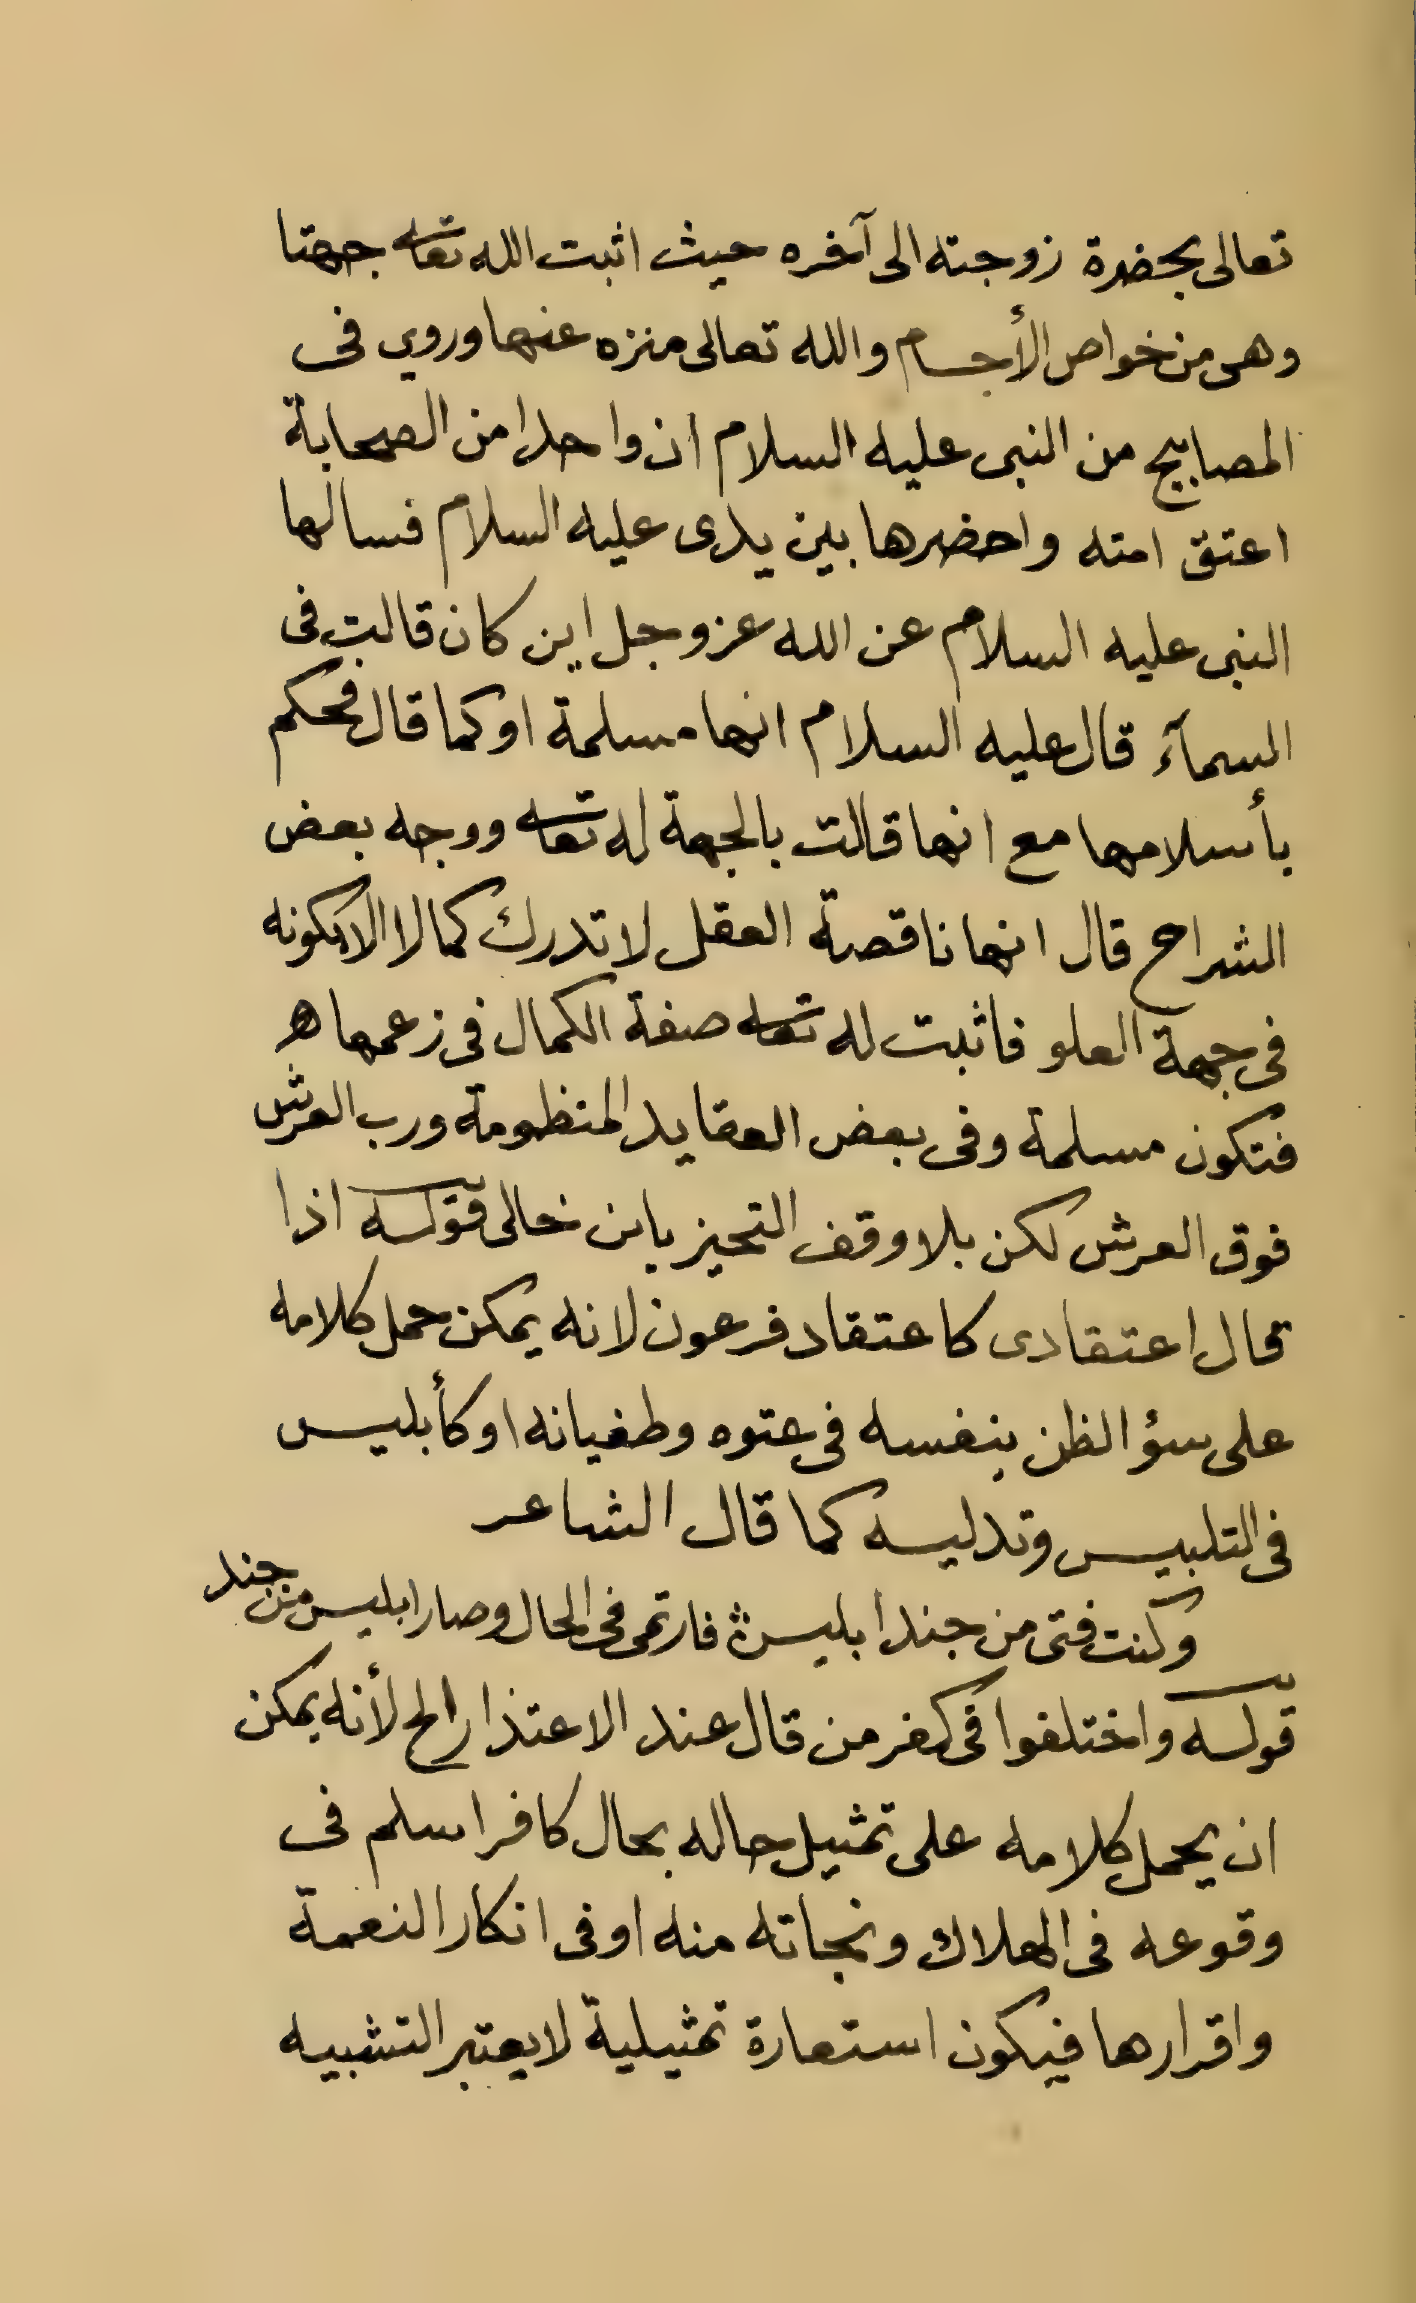 تعالى بحضرة زوجته الى آخره حيث اثبت الله تعالى جهتا
وهى من خواص الأجسام والله تعالى منزه عنها وروي فى
المصابيح من النبى عليه السلام ان واحدا من الصحابة
اعتق امته واحضرها بين يدى عليه السلام فسالها
النبى عليه السلام عن الله عز وجل اين كان قالت فى
السمآء قال عليه السلام انها مسلمة او كما قال فحكم
بأسلامها مع انها قالت بالجهة له تعالى ووجه بعض
الشراح قال انها ناقصة العقل لا تدرك كمالا الا بكونه
فى جهة العلو فاثبت له تعالى صفة الكمال فى زعمها
فتكون مسلمة وفى بعض العقايد المنظومة ورب العرش
فوق العرش لكن بلا وقف التحيز يا بن خالى قوله اذا
قال اعتقادى كاعتقاد فرعون لانه يمكن حمل كلامه
على سؤ الظن بنفسه فى عتوه وطغيانه او كأبليس
فى التلبيس وتدليسه كما قال الشاعر
وكنت فتى من جند ابليس فارتمى فى الحال وصار ابليس من جند
قوله واختلفوا فى كفر من قال عند الاعتذار الح لأنه يمكن
ان يحمل كلامه على تمثيل حاله بحال كافر اسلم فى
وقوعه فى الهلاك ونجاته منه او فى انكار النعمة
واقرارها فيكون استعارة تمثيلية لا يعتبر التشبيه